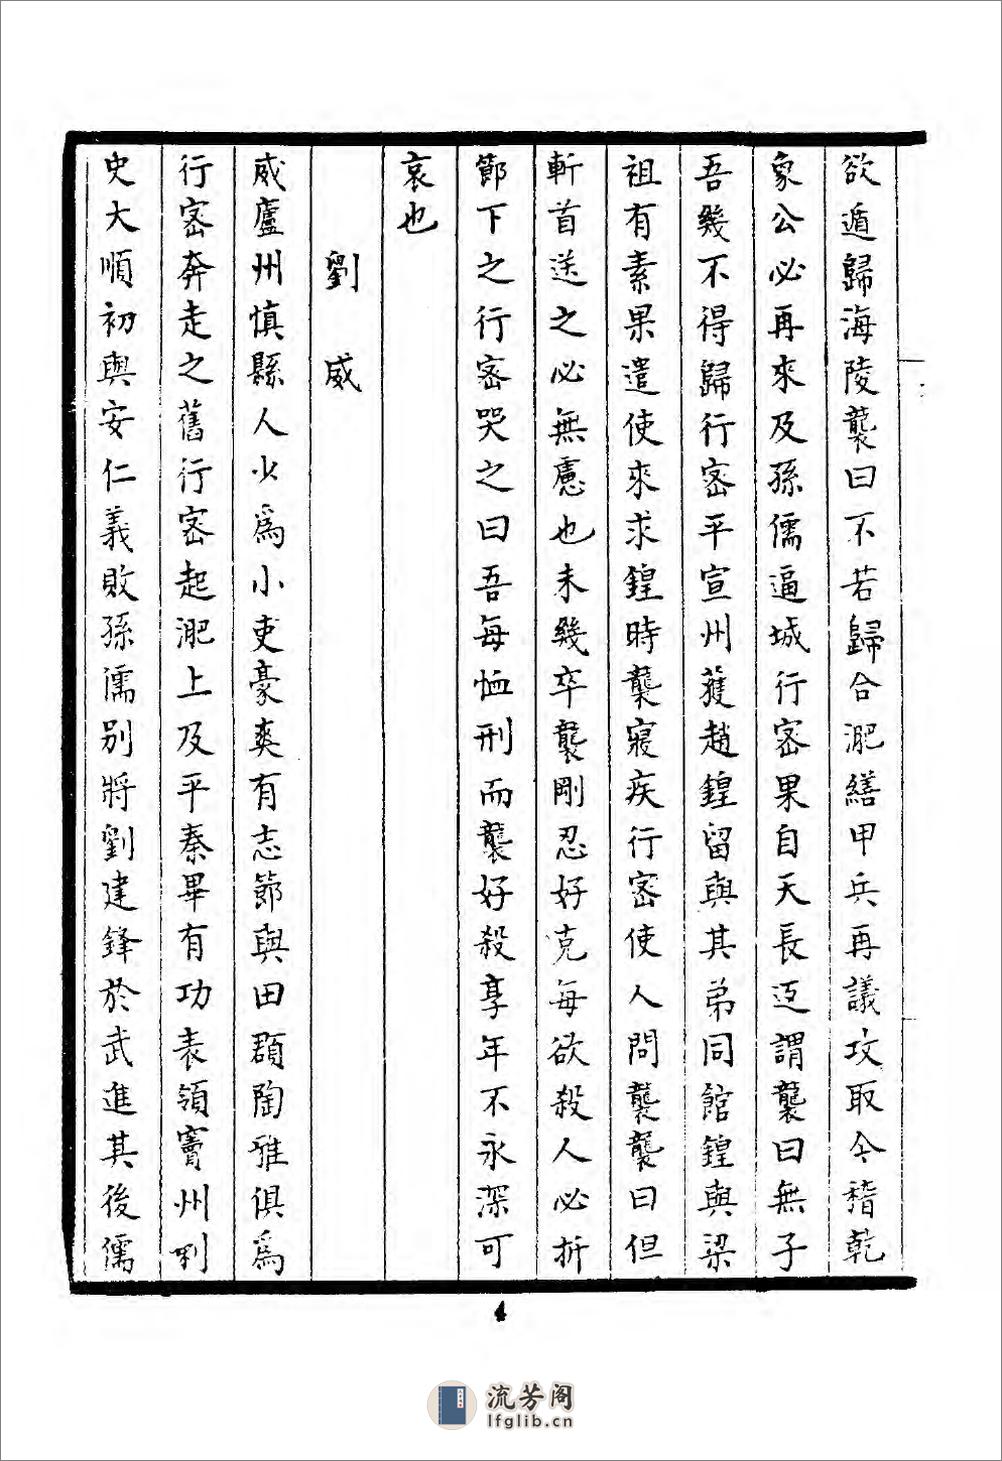 欲遁歸海陵襲曰不若歸合淝繕甲兵再議攻取今稽乾
象公必再來及孫儒逼城行密果自天長迈謂襲曰無子
吾幾不得歸行密平宣州獲趙鍠留與其弟同館鍠與梁
祖有素果遣使來求鍠時襲寢疾行密使人問襲襲曰但
斬首送之必無慮也未幾卒襲剛忍好克每欲殺人必折
節下之行密哭之曰吾每恤刑而襲好殺享年不永深可
哀也
劉威
威廬州慎縣人少為小吏豪爽有志節與田頵陶雅俱為
行密奔走之舊行密起淝上及平秦畢有功表領竇州刺
史大順初與安仁義敗孫儒別將劉建鋒於武進其後儒
4
流芳阁
lfglib.cn